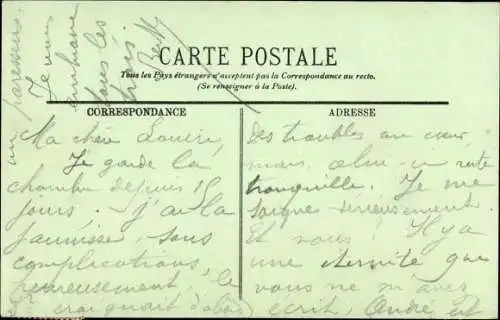 CARTE POSTALE
Tous les Pays étrangers n'acceptent pas la Correspondance au recto.
(Se renseigner à la Poste).
CORRESPONDANCE
Ma chère Louise,
Je garde la
chambre depuis 15
jours. j'ai la
jaunisse, sans
complications,
heureusement.
craignait d'abord
ADRESSE
des troubles au cœur
mais, celui-ci reste
tranquille. Je me
soigne sérieusement.
Et vous? Il y a
une éternité que
vous ne m'avez
écrit, André est
un paresseux.
Je vous
embrasse
tous les
trois